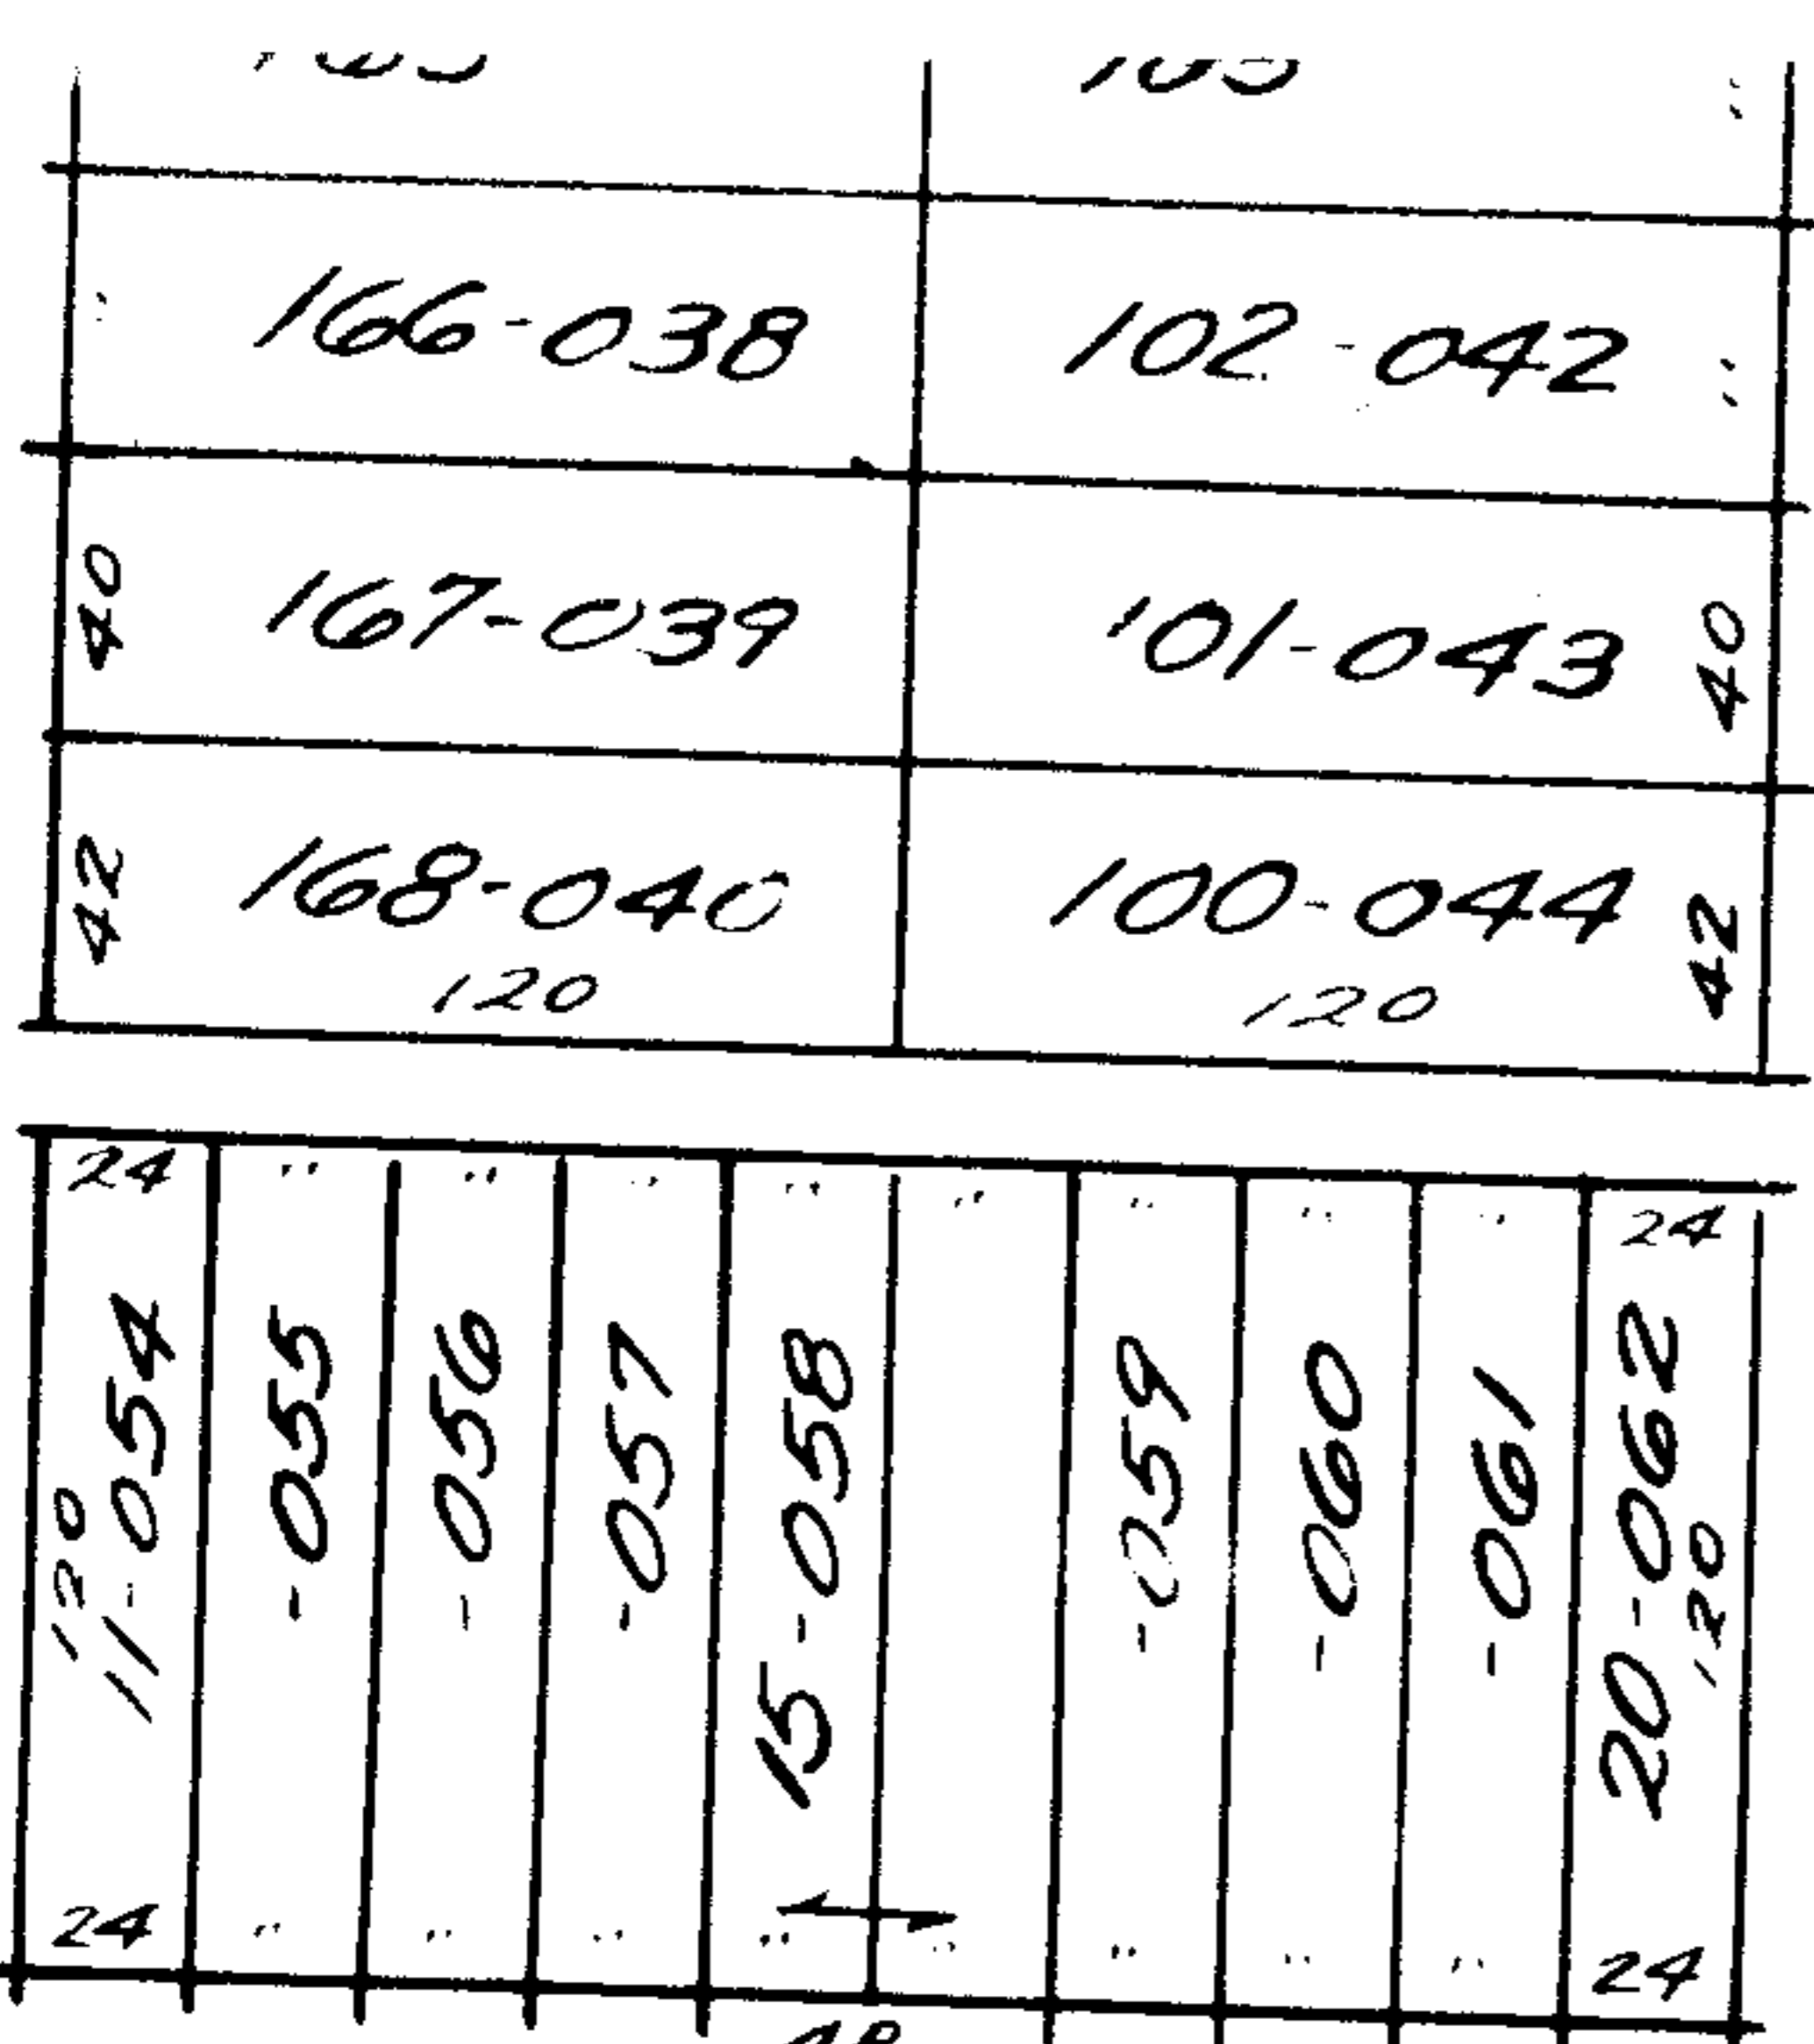 166-038 102-042
40 167-039 101-043 40
42 168-040 100-044 42
120 120
24 " " " " " " " " 24
120 11-054 -055 -056 -057 15-058 -059 -060 -061 20-062 120
24 " " " " " " " " 24